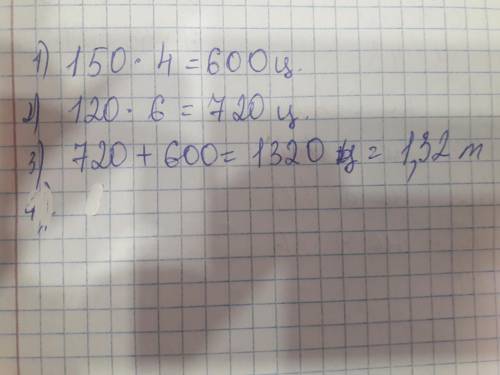 1) 150 · 4 = 600 ц.
2) 120 · 6 = 720 ц.
3) 720 + 600 = 1320 ц = 1,32 т
4)